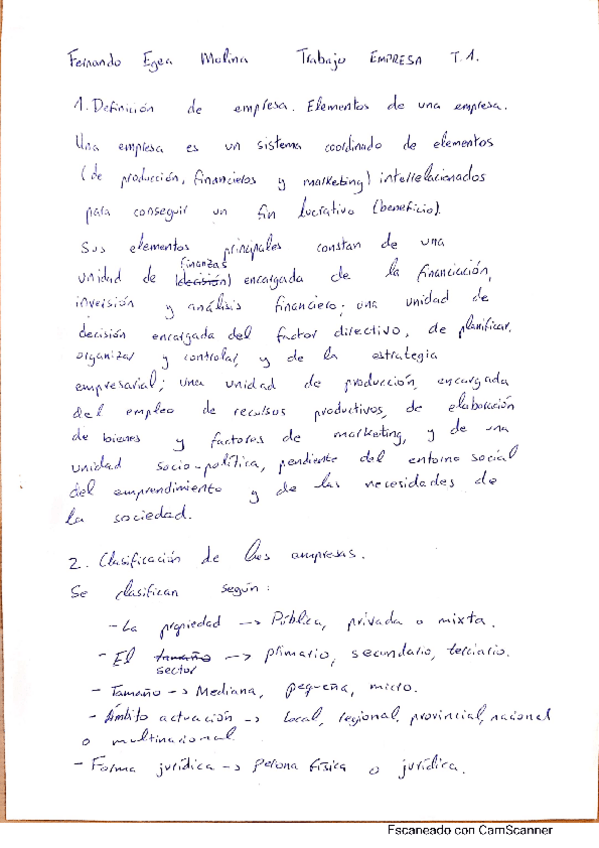 Fernando Egea Molina Trabajo EMPRESA T.1.
1. Definición de empresa. Elementos de una empresa.
Una empresa es un sistema coordinado de elementos
(de producción, financieros y marketing) interrelacionados
para conseguir un fin lucrativo (beneficio).
Sus elementos principales constan de una
finanzas
unidad de (decisión) encargada de la financiación,
inversión y análisis financiero; una unidad de
decisión encargada del factor directivo, de planificar,
organizar y controlar, y de la estrategia
empresarial; una unidad de producción, encargada
del empleo de recursos productivos, de elaboración
de bienes y factores de marketing, y de una
unidad socio-política, pendiente del entorno social
del emprendimiento y de las necesidades de
la sociedad.
2. Clasificación de las empresas.
Se clasifican según:
- La propiedad -> Pública, privada o mixta.
- El tamaño -> primario, secundario, terciario.
sector
- Tamaño -> Mediana, pequeña, micro.
- Ámbito actuación -> local, regional, provincial, nacional
o multinacional.
- Forma jurídica -> Persona física o jurídica.
Escaneado con CamScanner